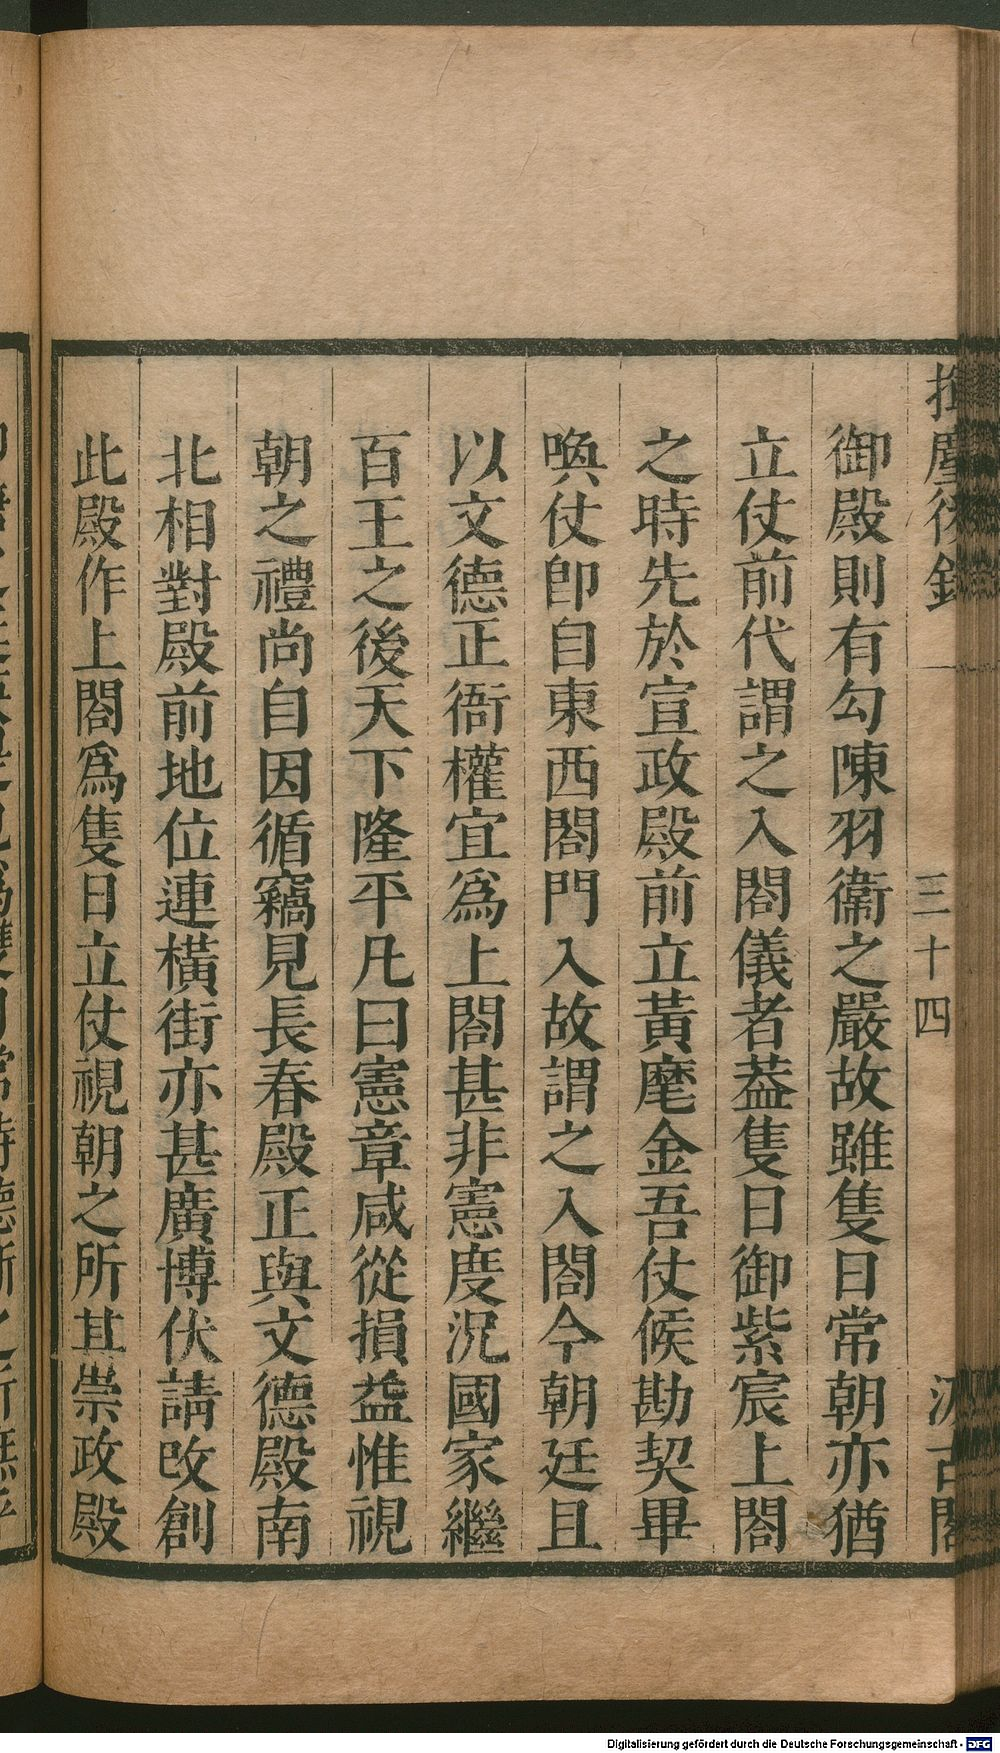 揮麈後錄
三十四
汲古閣
御殿則有勾陳羽衞之嚴故雖隻日常朝亦猶
立仗前代謂之入閤儀者葢隻日御紫宸上閤
之時先於宣政殿前立黃麾金吾仗候勘契畢
喚仗卽自東西閤門入故謂之入閤今朝廷且
以文德正衙權宜爲上閤甚非憲度況國家繼
百王之後天下隆平凡曰憲章咸從損益惟視
朝之禮尚自因循竊見長春殿正與文德殿南
北相對殿前地位連橫街亦甚廣博伏請改創
此殿作上閤爲隻日立仗視朝之所其崇政殿
Digitalisierung gefördert durch die Deutsche Forschungsgemeinschaft - DFG